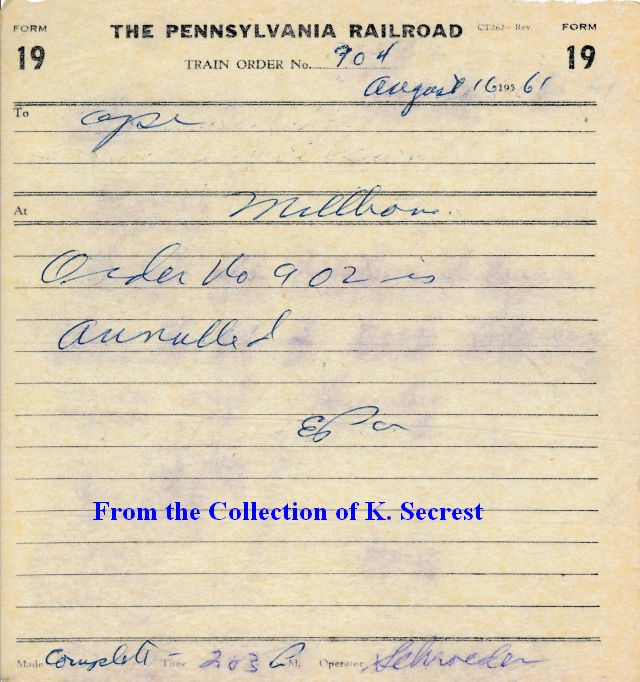 FORM THE PENNSYLVANIA RAILROAD CT262—Rev. FORM
19 TRAIN ORDER No. 904 19
August 16 195 61
To opr
At Millbrook
Order No 902 is
annulled
From the Collection of K. Secrest
Made Complete Time 203 P M. Operator Schroeder